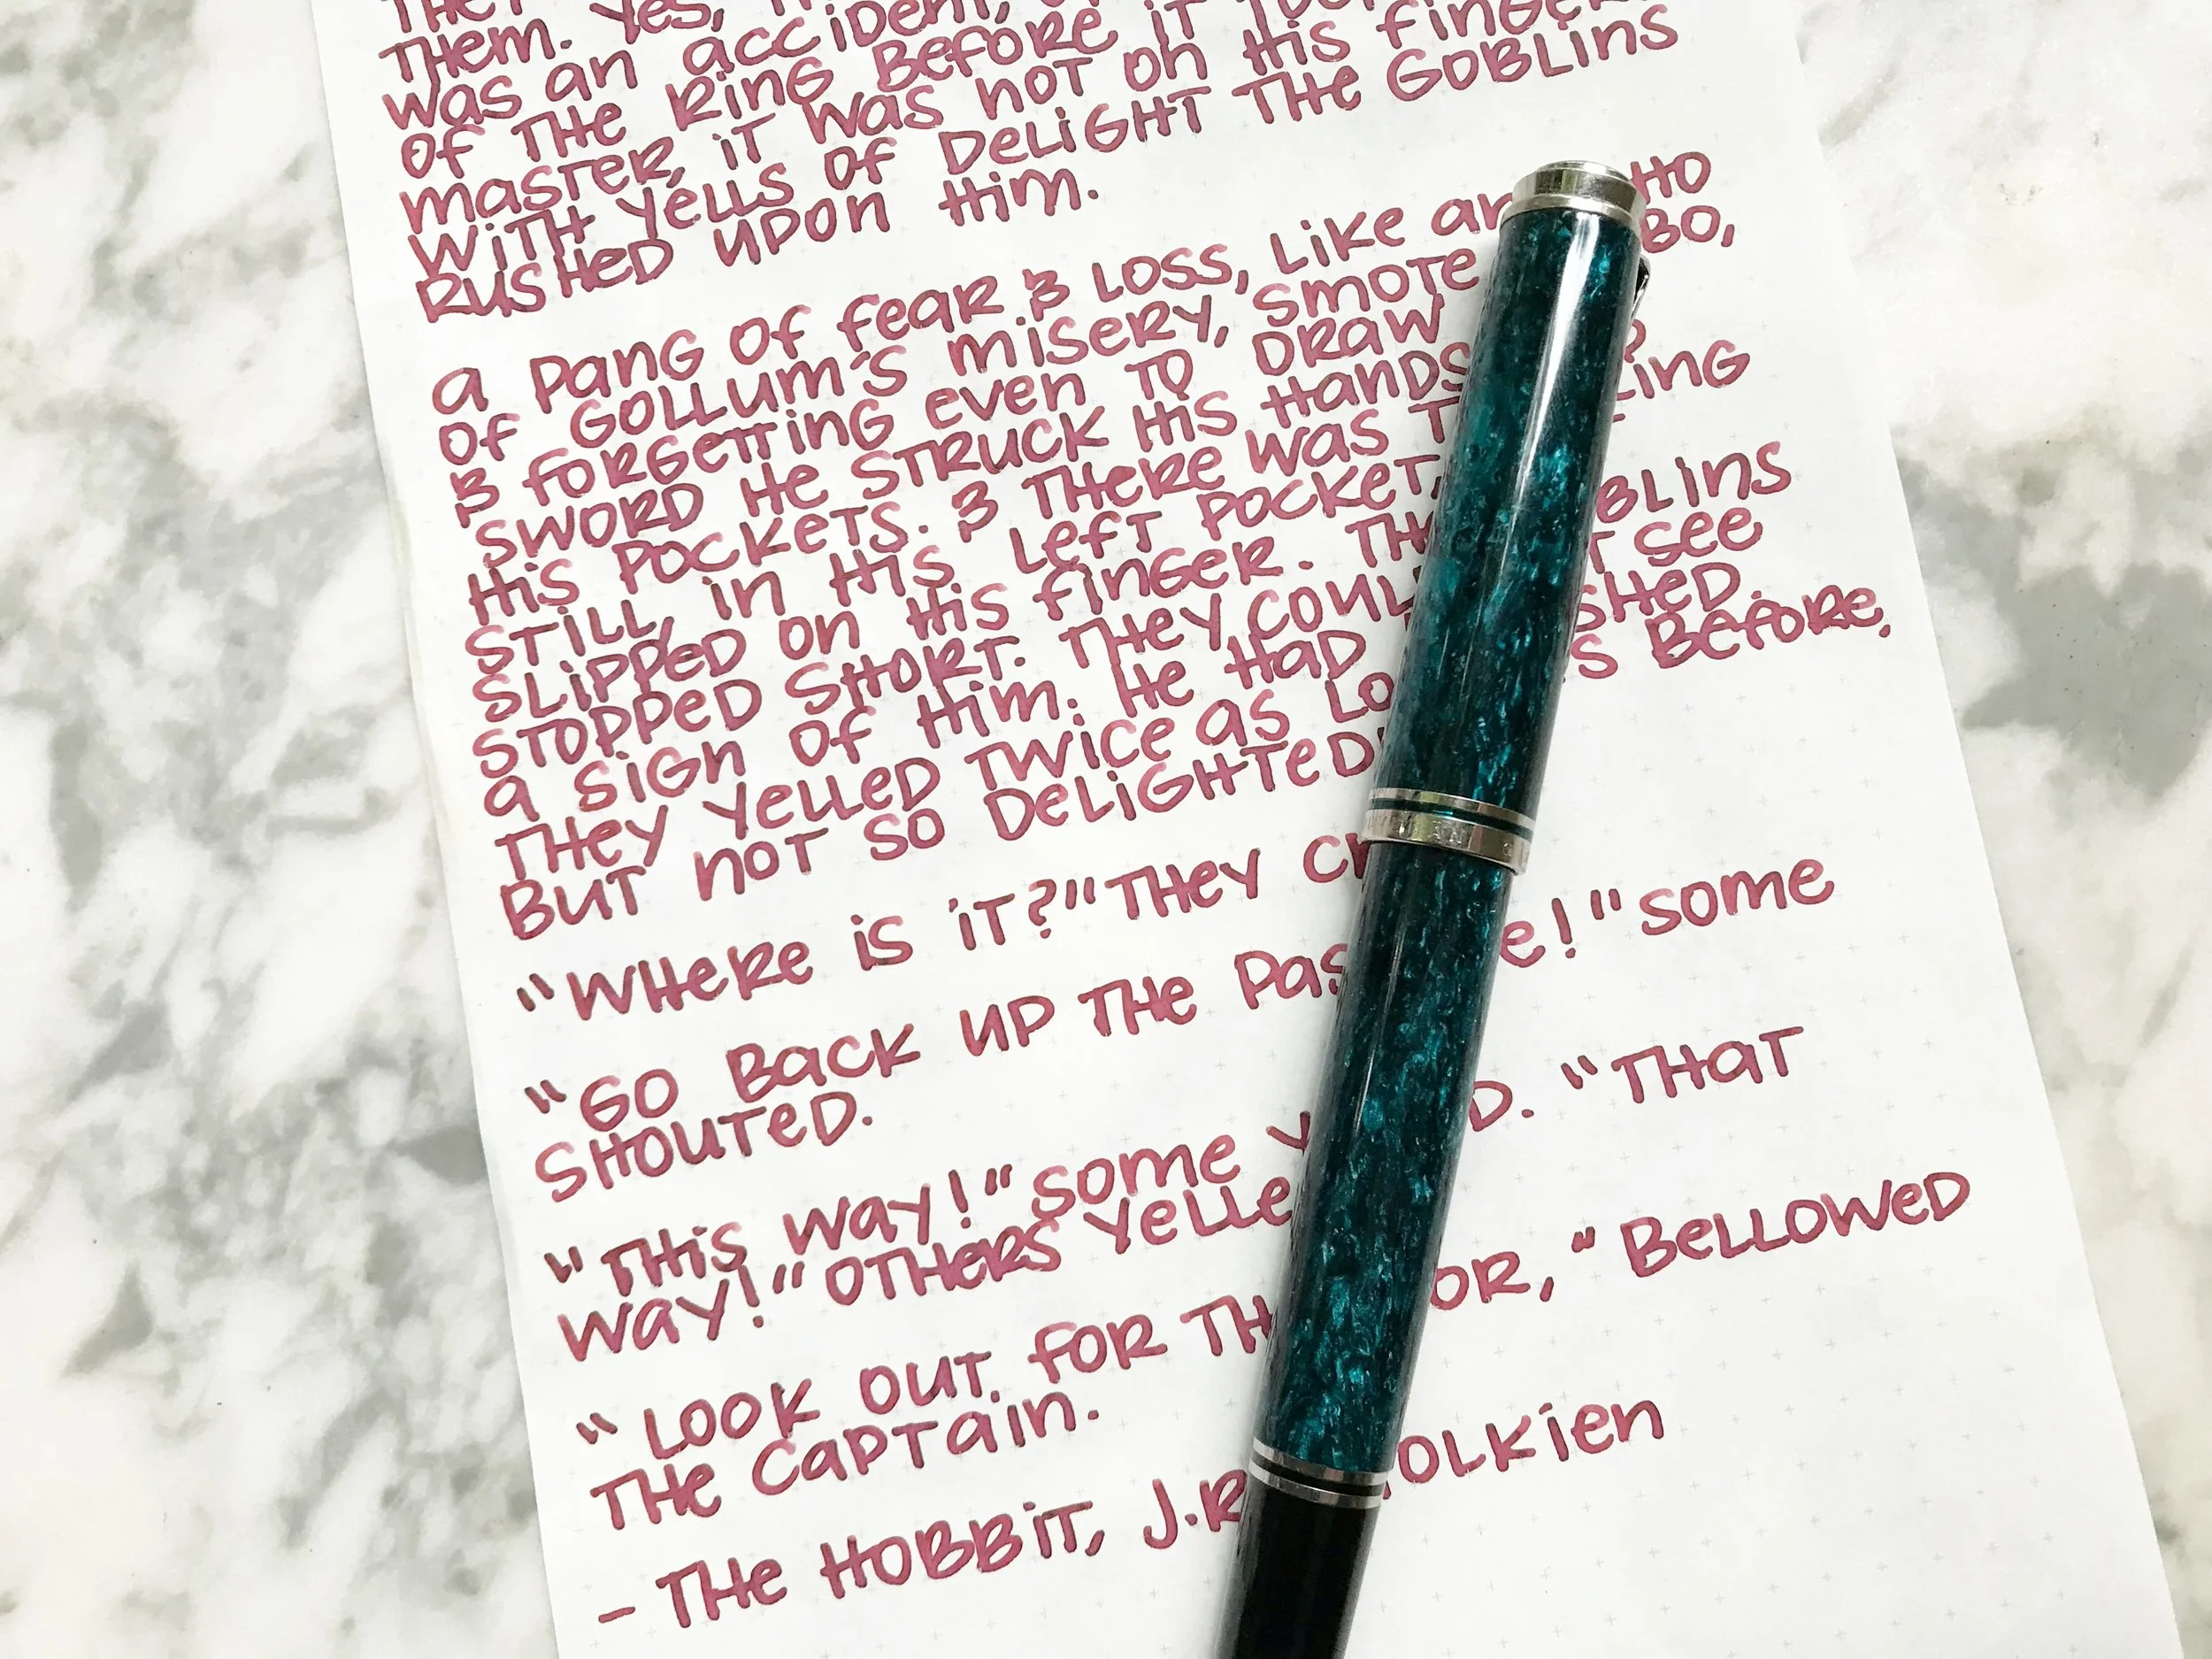 THEM. Yes,
was an accident,
of THE RING BEFORE IT
MASTER, IT was NOT ON His finger.
WITH yells OF DELIGHT THE GOBLINS
RUSHED UPON HIM.
a PANG OF FEAR & LOSS, LIKE an HO
OF GOLLUM'S MISERY, SMOTE BO,
& FORGETTING even TO DRAW
SWORD He STRUCK His HANDS
His POCKETS. & THERE was T RING
STILL, in His LEFT POCKET,
SLIPPED on His FINGER. THE BLINS
STOPPED SHORT. THEY COUL T see
a SIGN OF HIM. He HAD SHED.
THEY YELLED TWICE as LO S BEFORE,
BUT NOT SO DELIGHTED
"WHERE is iT?" THEY CR
"GO BACK UP THE PAS e!" SOME
SHOUTED.
"THIS way!" some y D. "THAT
way!" OTHERS YELLE
"LOOK OUT FOR TH OR," BELLOWED
THE CAPTAIN.
- THE HOBBIT, J.R OLKIEN